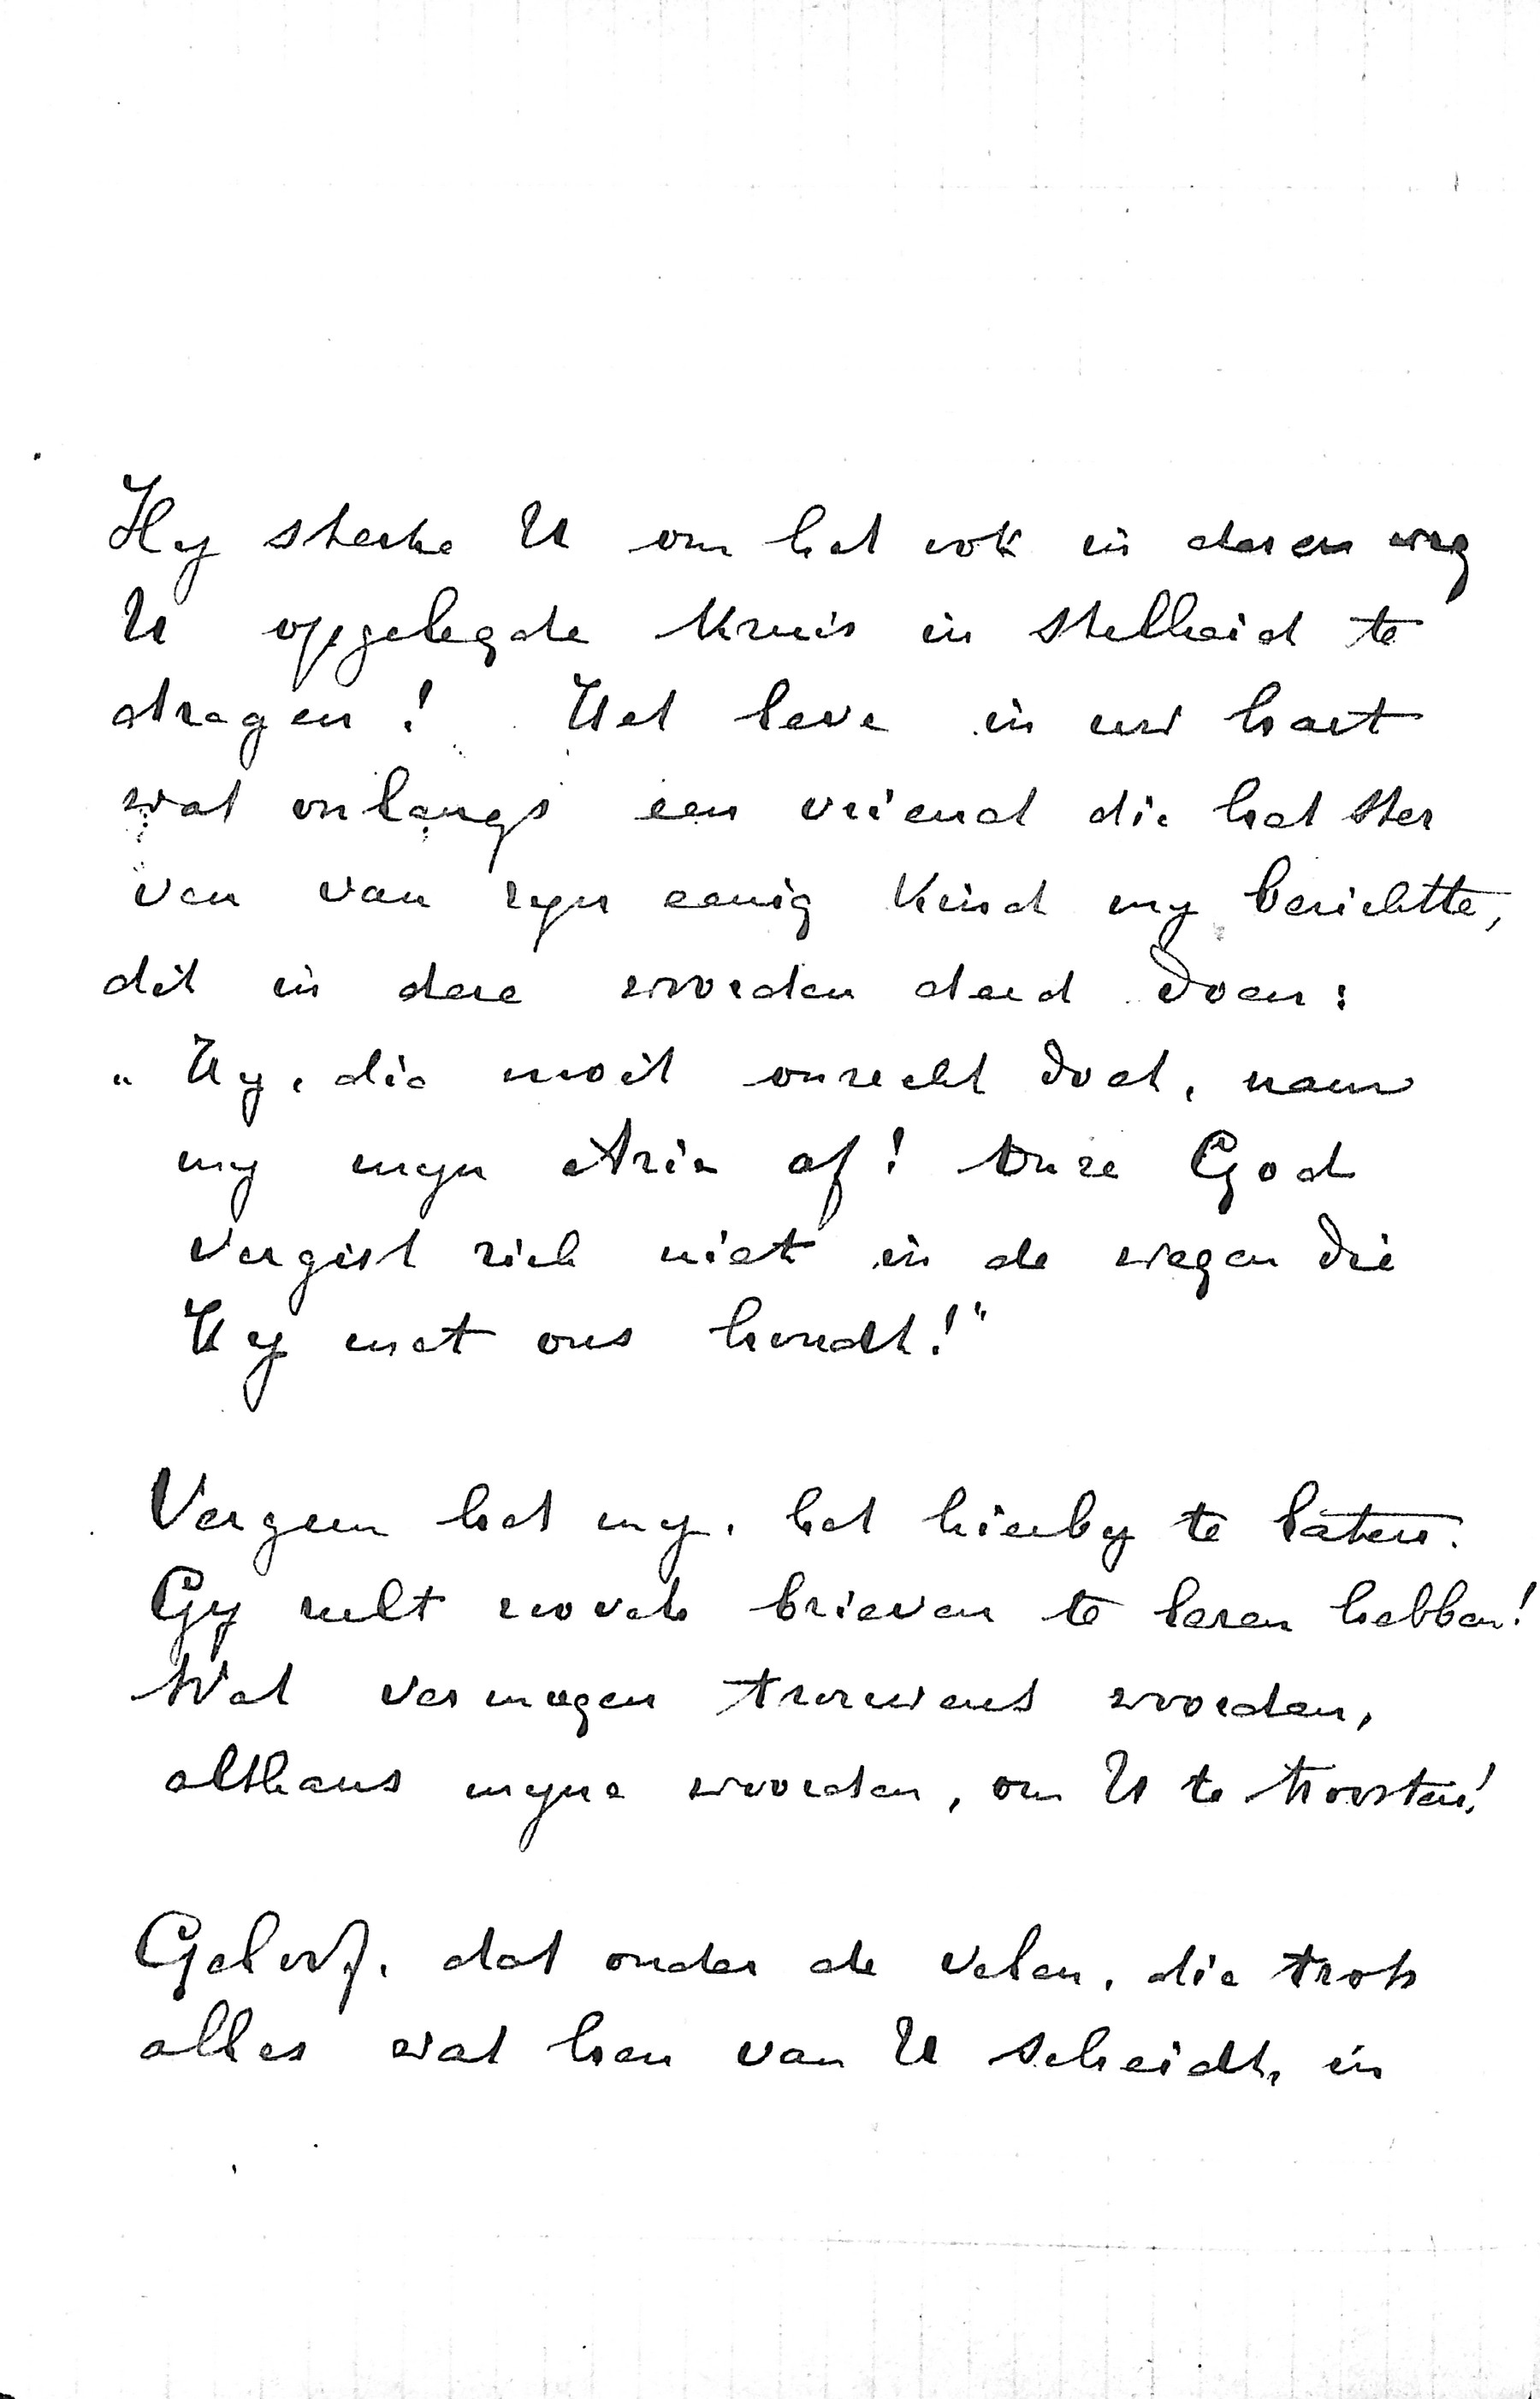 Hy sterke U om het ook in dezen weg
U opgelegde kruis in stilheid te
dragen! Het leve in uw hart
wat onlangs een vriend die het ster
ven van zyn eenig kind my berichtte,
dit in deze woorden deed doen:
„Hy, die nooit onrecht doet, nam
my myn Arie af! Onze God
vergist zich niet in de wegen die
Hy met ons houdt!"
Vergun het my, het hierby te laten.
Gy zult zooveel brieven te lezen hebben!
Wat vermogen trouwens woorden,
althans myne woorden, om U te troosten!
Geloof, dat onder de velen, die trots
alles wat hen van U scheidt, in